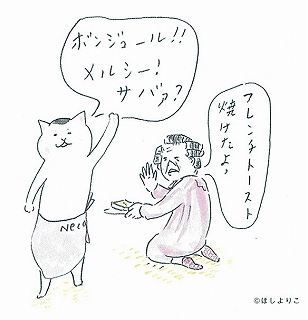 ボンジュール!!
メルシー!
サバァ?
フレンチトースト
焼けたよ
Neco
©ほしよりこ